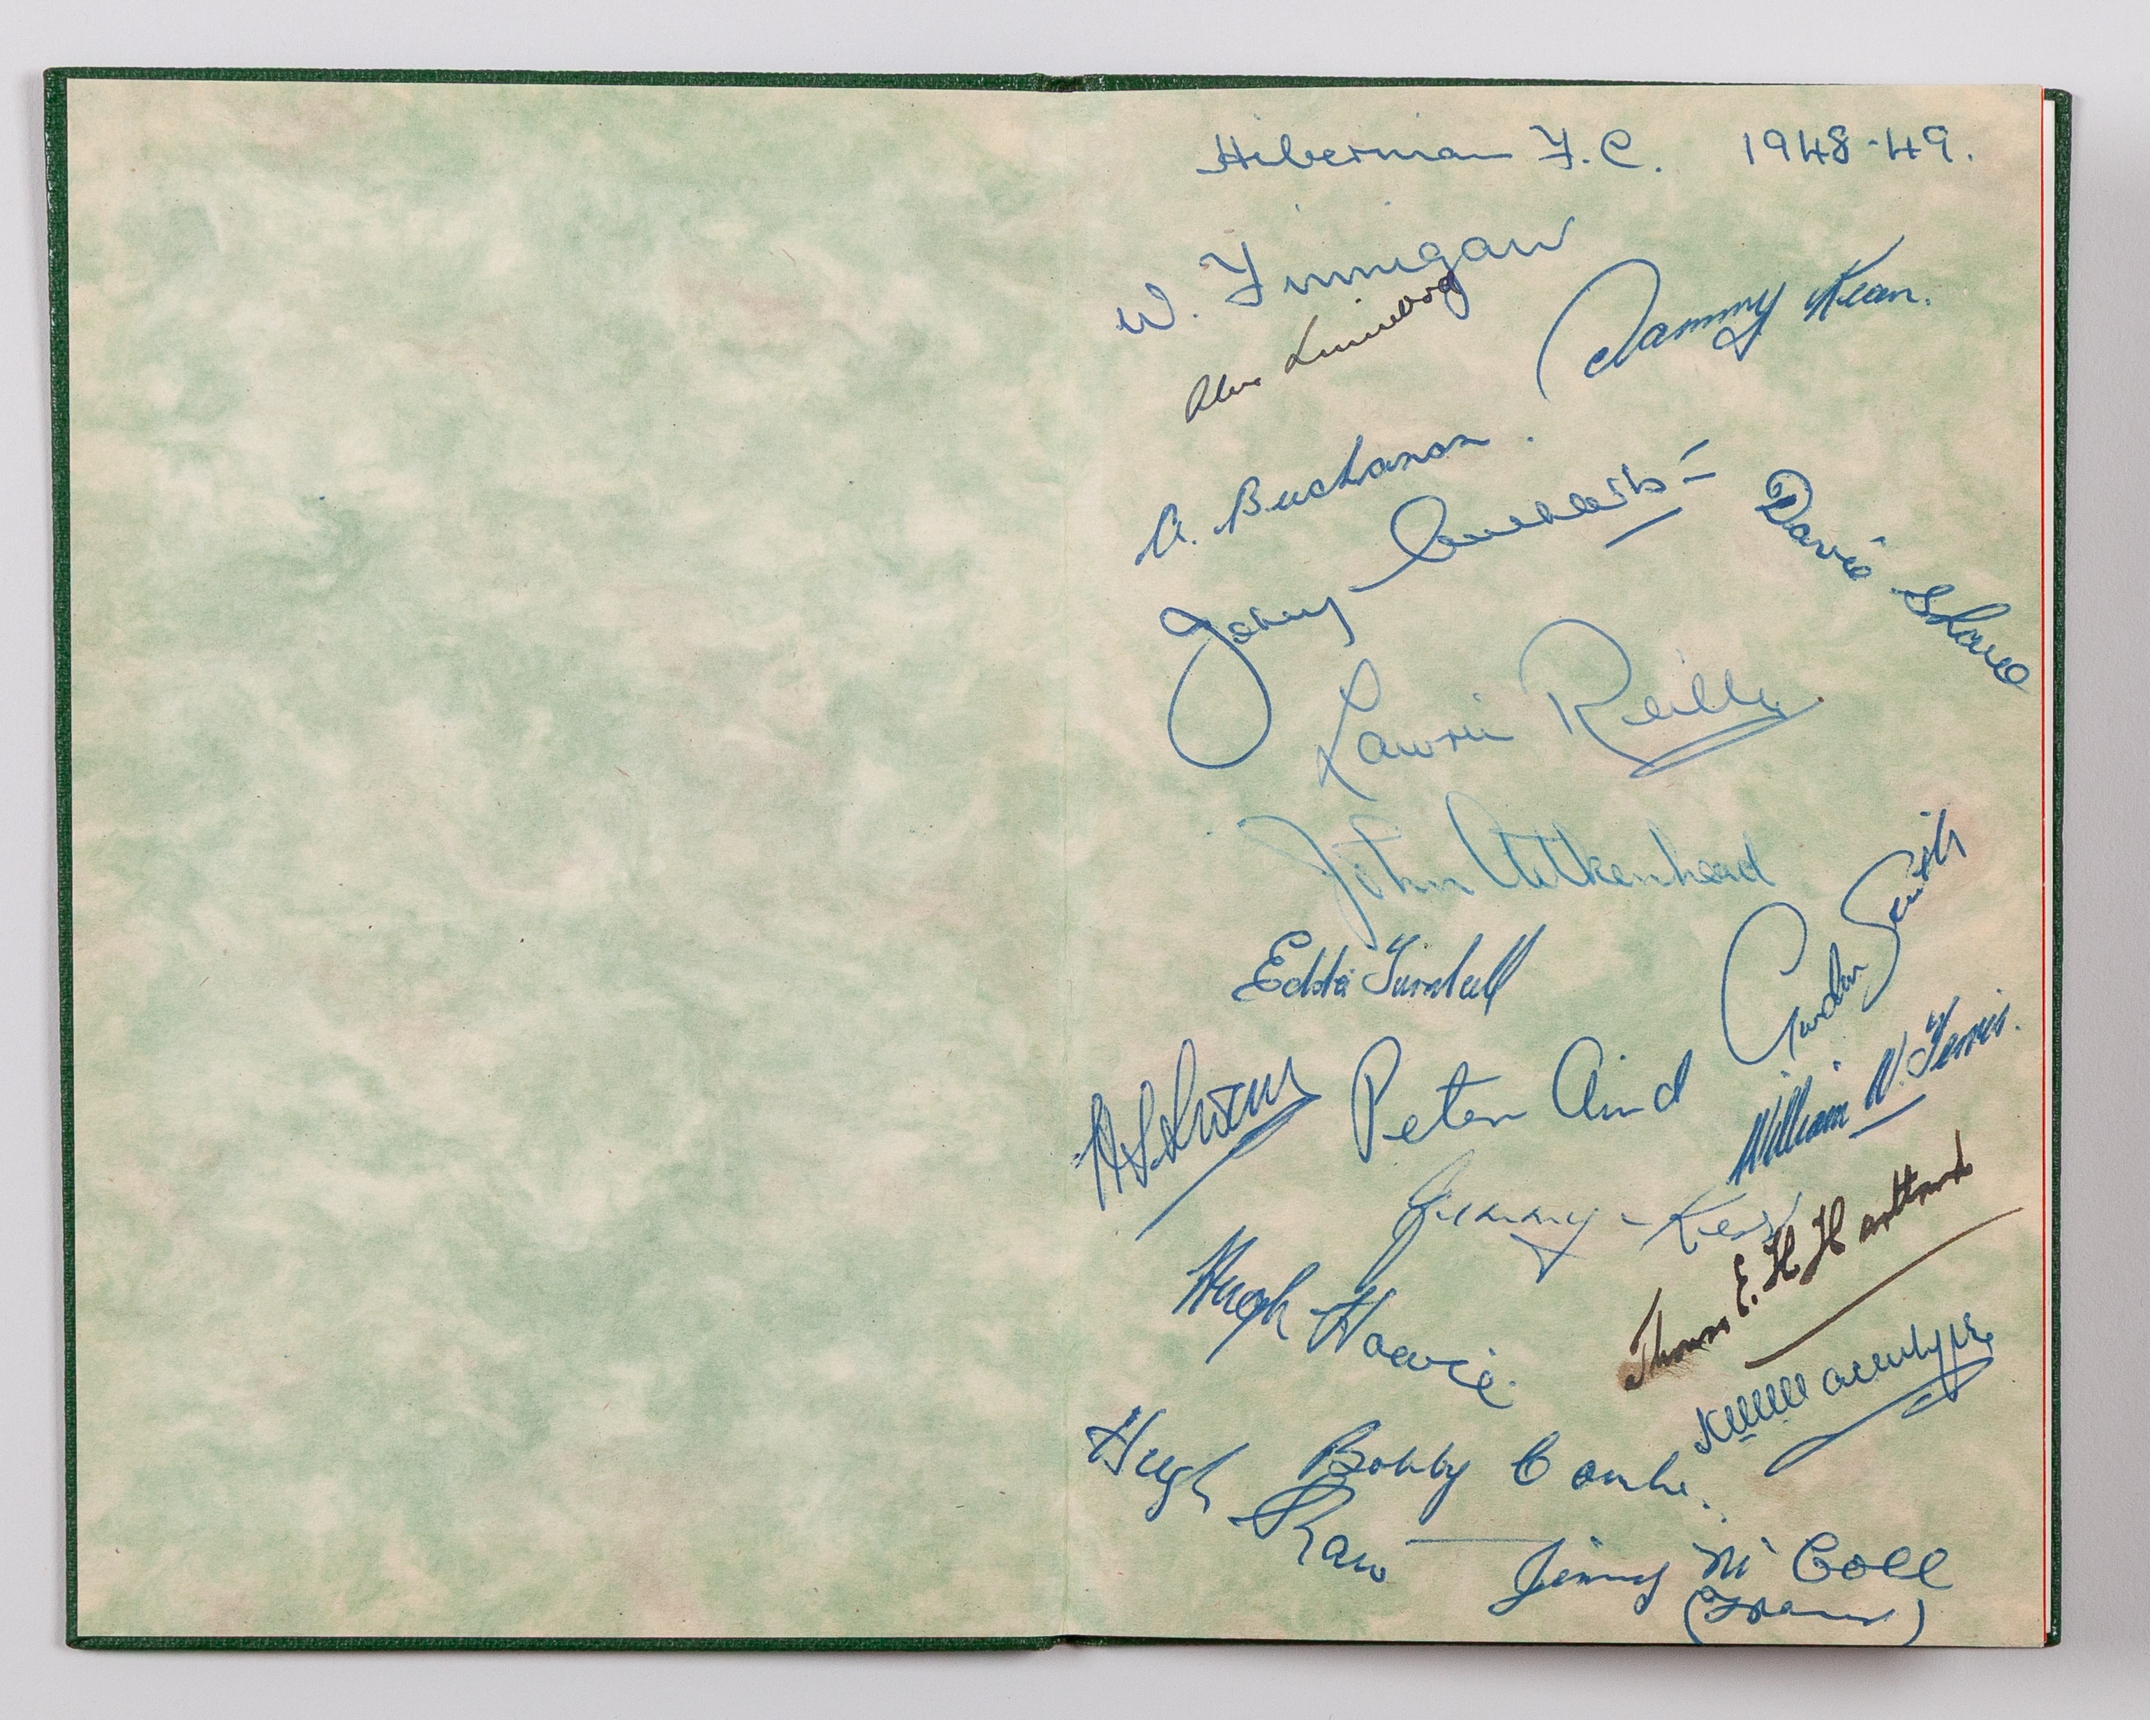 Hibernian F.C. 1948-49.
W. Finnigan
Alex Linwood
Sammy Kean.
A. Buchanan.
Johnny Cuthbertson
Davie Shaw
Lawrie Reilly
John Aitkenhead
Eddie Turnbull
Gordon Smith
Peter Aird
William N. Ferris.
Jimmy Kerr
Hugh Howie.
Thomas E. H.
Hugh Shaw
Bobby Combe.
Jimmy McColl
(Trainer)